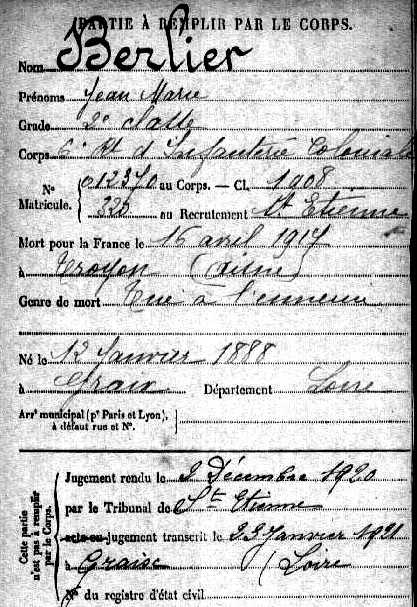 PARTIE À REMPLIR PAR LE CORPS.
Nom Berlier
Prénoms Jean Marie
Grade 2e classe
Corps 6e Rt d'Infanterie Coloniale
N° Matricule. { 012370 au Corps. — Cl. 1908
325 au Recrutement St Etienne
Mort pour la France le 16 avril 1917
à Troyon (Aisne)
Genre de mort Tué à l'ennemi
Né le 12 Janvier 1888
à Graix Département Loire
Arrt municipal (pr Paris et Lyon),
à défaut rue et N°.
Cette partie n'est pas à remplir par le Corps.
Jugement rendu le 2 Décembre 1920
par le Tribunal de St Etienne
acte ou jugement transcrit le 23 Janvier 1921
à Graix (Loire)
N° du registre d'état civil